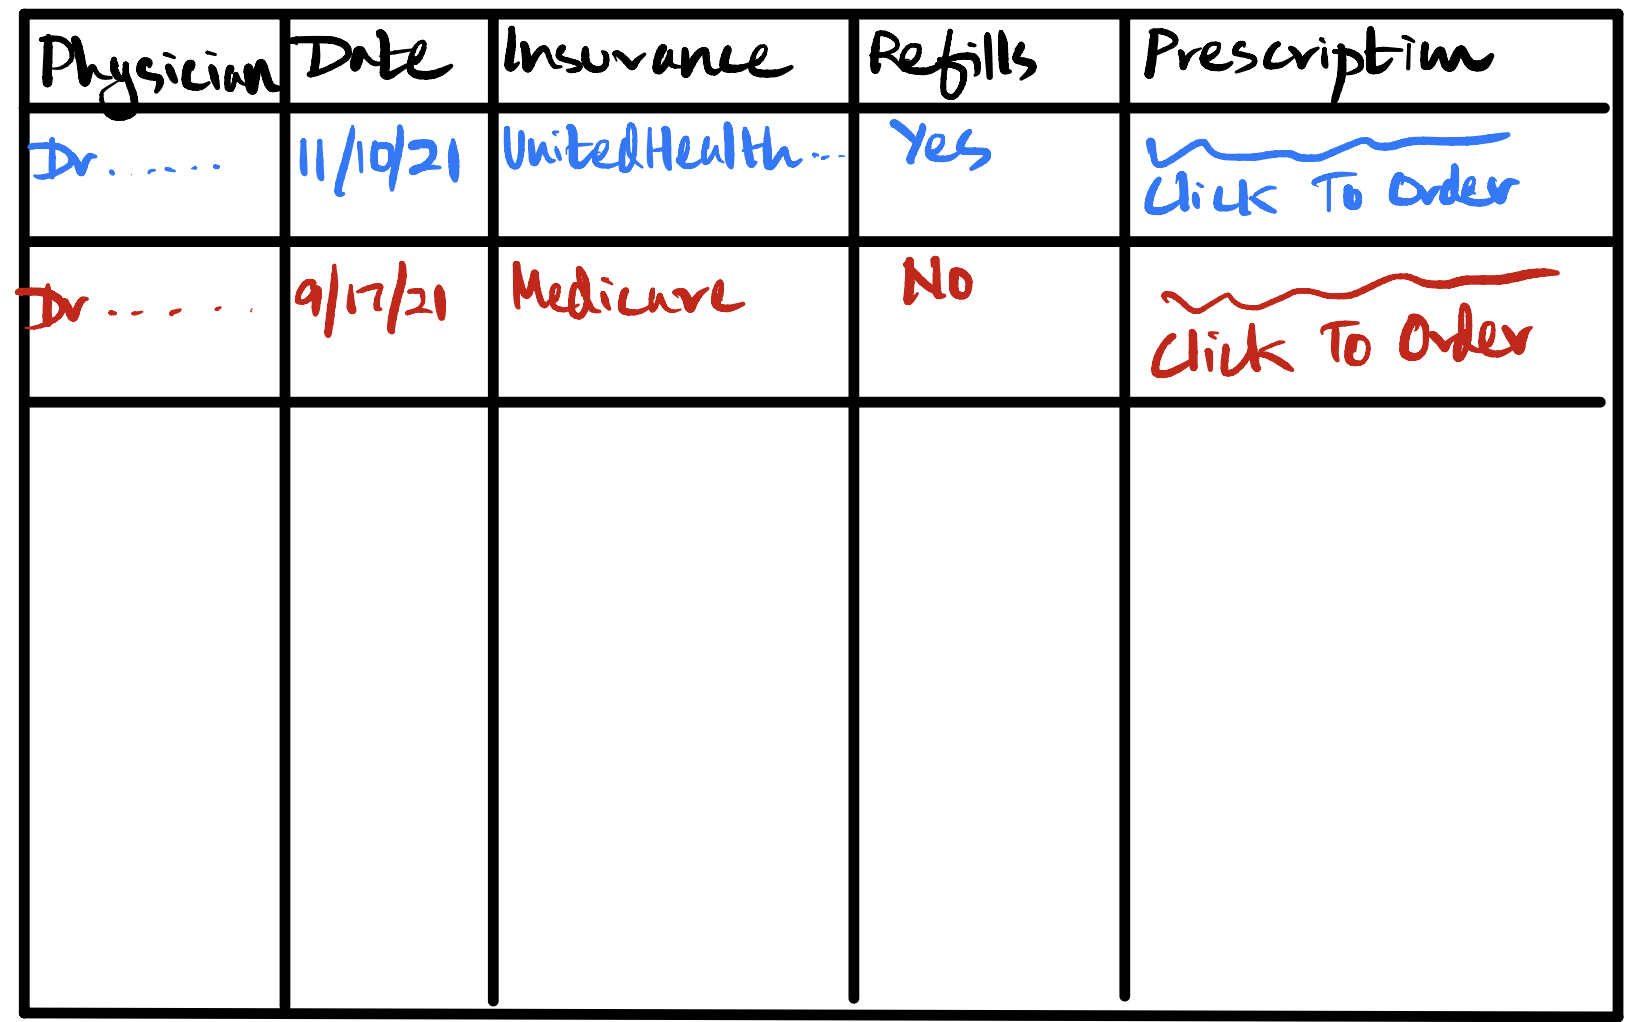 Physician Date Insurance Refills Prescription
Dr ...... 11/10/21 UnitedHealth... Yes
Click To Order
Dr ...... 9/17/21 Medicare No
Click To Order